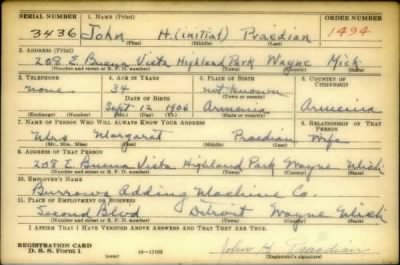 SERIAL NUMBER 1. NAME (Print) ORDER NUMBER
3436 John H.(initial) Praedian 1494
(First) (Middle) (Last)
2. ADDRESS (Print)
208 E. Buena Vista Highland Park Wayne Mich
(Number and street or R. F. D. number) (Town) (County) (State)
3. TELEPHONE 4. AGE IN YEARS 5. PLACE OF BIRTH 6. COUNTRY OF CITIZENSHIP
none 34 not known
DATE OF BIRTH (Town or county)
Sept 12 1906 Armenia Armenia
(Exchange) (Number) (Mo.) (Day) (Yr.) (State or country)
7. NAME OF PERSON WHO WILL ALWAYS KNOW YOUR ADDRESS 8. RELATIONSHIP OF THAT PERSON
Mrs Margaret Praedian Wife
(Mr., Mrs., Miss) (First) (Middle) (Last)
9. ADDRESS OF THAT PERSON
208 E. Buena Vista Highland Park Wayne Mich
(Number and street or R. F. D. number) (Town) (County) (State)
10. EMPLOYER'S NAME
Burrows Adding Machine Co
11. PLACE OF EMPLOYMENT OR BUSINESS
Second Blvd Detroit Wayne Mich
(Number and street or R. F. D. number) (Town) (County) (State)
I AFFIRM THAT I HAVE VERIFIED ABOVE ANSWERS AND THAT THEY ARE TRUE.
REGISTRATION CARD
D. S. S. Form 1 John H. Praedian
(Registrant's signature)